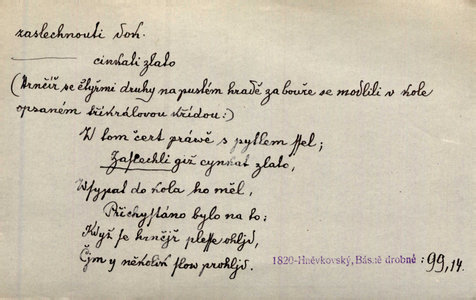 zaslechnouti dok.
cinkati zlato
(Hrnčíř se čtyřmi druhy na pustém hradě za bouře se modlili v kole
opsaném tříkrálovou křídou:)
W tom čert práwě s pytlem ssel;
Zaslechli giž cynkat zlato,
Wsypat do kola ho měl,
Přichystáno bylo na to:
Když se hrnčjř plesse ohljd,
Čjm y několik slow prohljd.
1820-Hněvkovský, Básně drobné : 99,14.